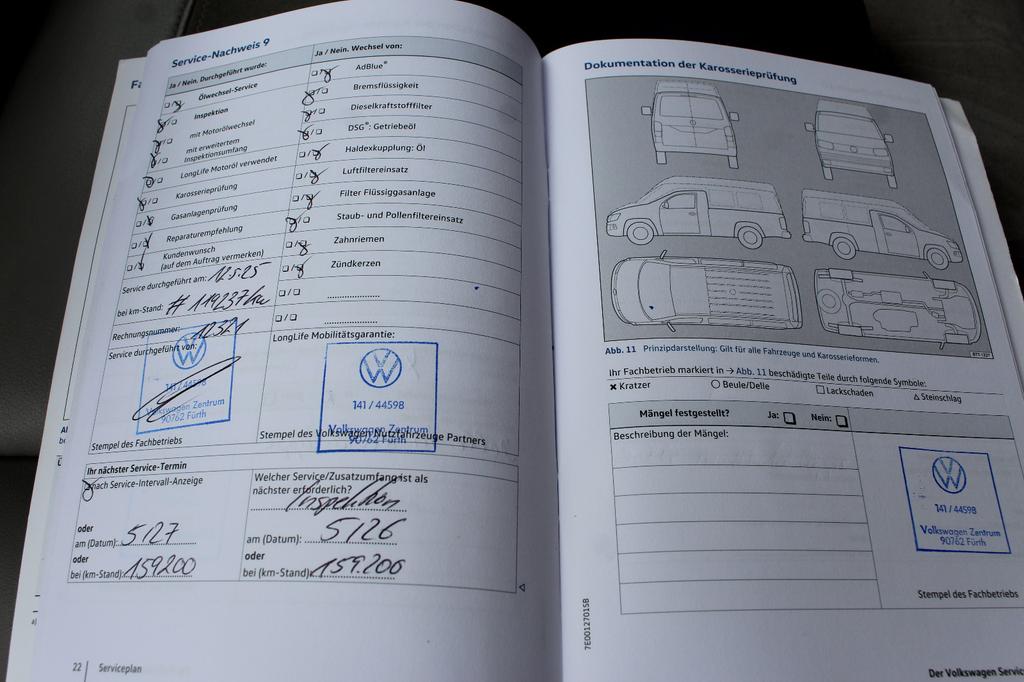 Service-Nachweis 9
Ja / Nein. Durchgeführt wurde:
Ölwechsel-Service
Inspektion
mit Motorölwechsel
mit erweitertem
Inspektionsumfang
LongLife Motoröl verwendet
Karosserieprüfung
Gasanlagenprüfung
Reparaturempfehlung
Kundenwunsch
(auf dem Auftrag vermerken)
Service durchgeführt am: 12.5.25
bei km-Stand: # 119237 km
Rechnungsnummer:
Service durchgeführt von:
141 / 44598
Volkswagen Zentrum
90762 Fürth
Stempel des Fachbetriebs
Ja / Nein. Wechsel von:
AdBlue®
Bremsflüssigkeit
Dieselkraftstofffilter
DSG®: Getriebeöl
Haldexkupplung: Öl
Luftfiltereinsatz
Filter Flüssiggasanlage
Staub- und Pollenfiltereinsatz
Zahnriemen
Zündkerzen
LongLife Mobilitätsgarantie:
141 / 44598
Volkswagen Zentrum
90762 Fürth
Stempel des Volkswagen Nutzfahrzeuge Partners
Ihr nächster Service-Termin
nach Service-Intervall-Anzeige
oder
am (Datum): 5/27
oder
bei (km-Stand): 159200
Welcher Service/Zusatzumfang ist als
nächster erforderlich?
Inspektion
am (Datum): 5/26
oder
bei (km-Stand): 159.200
22 | Serviceplan
Dokumentation der Karosserieprüfung
Abb. 11 Prinzipdarstellung: Gilt für alle Fahrzeuge und Karosserieformen.
Ihr Fachbetrieb markiert in → Abb. 11 beschädigte Teile durch folgende Symbole:
Kratzer
Beule/Delle
Lackschaden
Steinschlag
Mängel festgestellt? Ja: Nein:
Beschreibung der Mängel:
141 / 44598
Volkswagen Zentrum
90762 Fürth
Stempel des Fachbetriebs
7E0012701SB
Der Volkswagen Servic